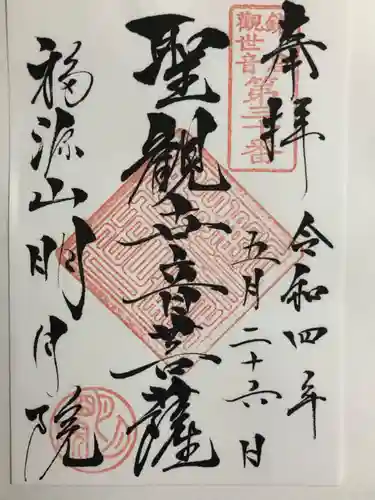 奉拝
令和四年
五月二十六日
鎌倉
觀世音
第三十番
聖観世音菩薩
福源山明月院